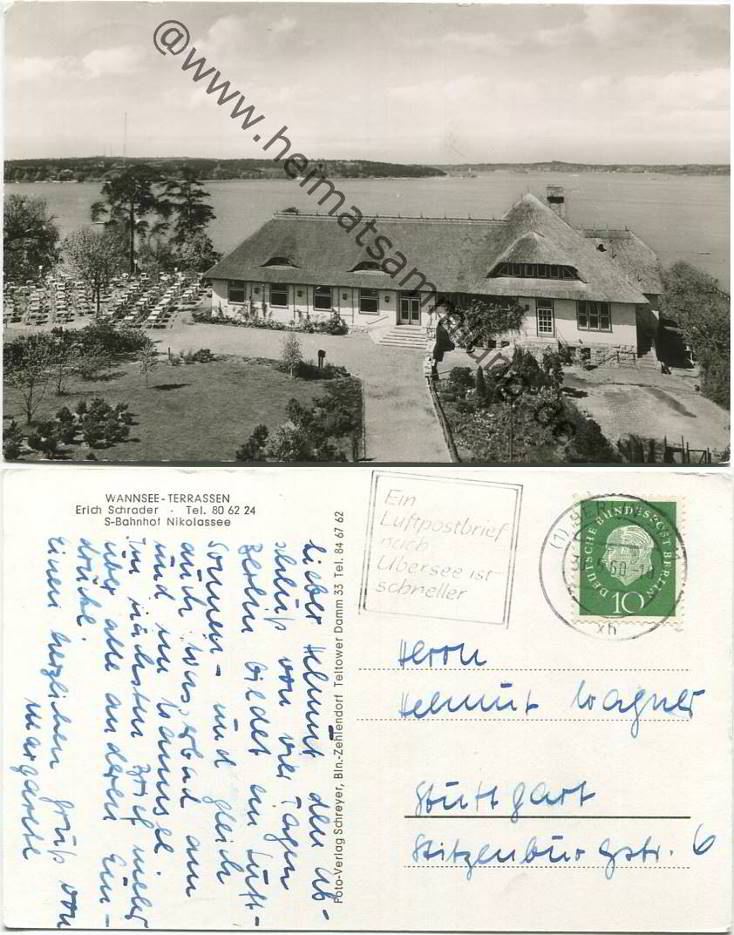 @www.heimatsammlung.de
WANNSEE-TERRASSEN
Erich Schrader · Tel. 80 62 24
S-Bahnhof Nikolassee
Lieber Helmut, den Ab-
schluß von vier Tagen
Berlin bildet ein Luft-
Sonnen- und gleich
auch Wasserbad am
und im Wannsee.
Im nächsten Brief mehr
über alle anderen Ein-
drücke.
Einen herzlichen Gruß von
Margarete
Foto-Verlag Schreyer, Bln.-Zehlendorf Teltower Damm 35 Tel. 84 67 62
Ein
Luftpostbrief
nach
Übersee ist
schneller
(1) BERLIN
60-10
xh
DEUTSCHE BUNDESPOST BERLIN
10
Herrn
Helmut Wagner
Stuttgart
Stitzenburgstr. 6